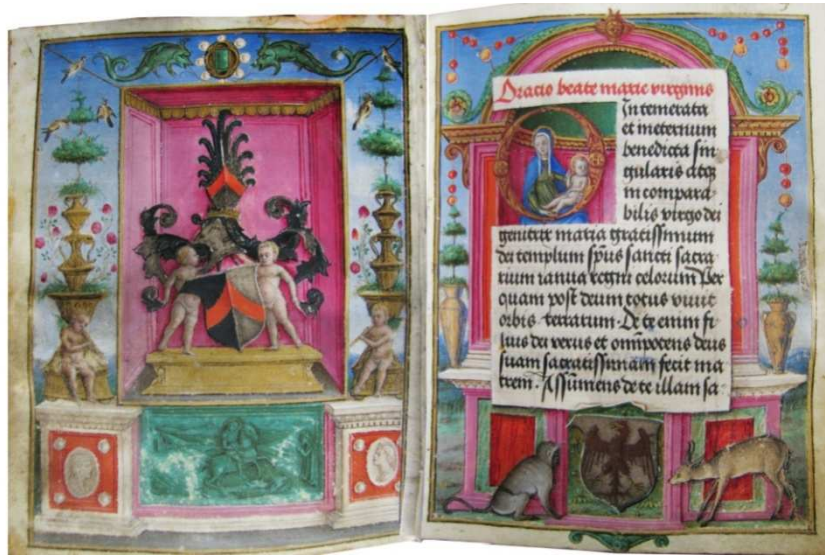 Oracio beate marie virginis
In temerata
et ineternum
benedicta sin
gularis atq
in compara
bilis virgo dei
genitrix maria gratissimum
dei templum spus sancti sacra
rium ianua regni celorum Per
quam post deum totus vivit
orbis terrarum De te enim fi
lius dei verus et omipotens deus
suam sacratissimam fecit ma
trem. Assumens de te illam sa